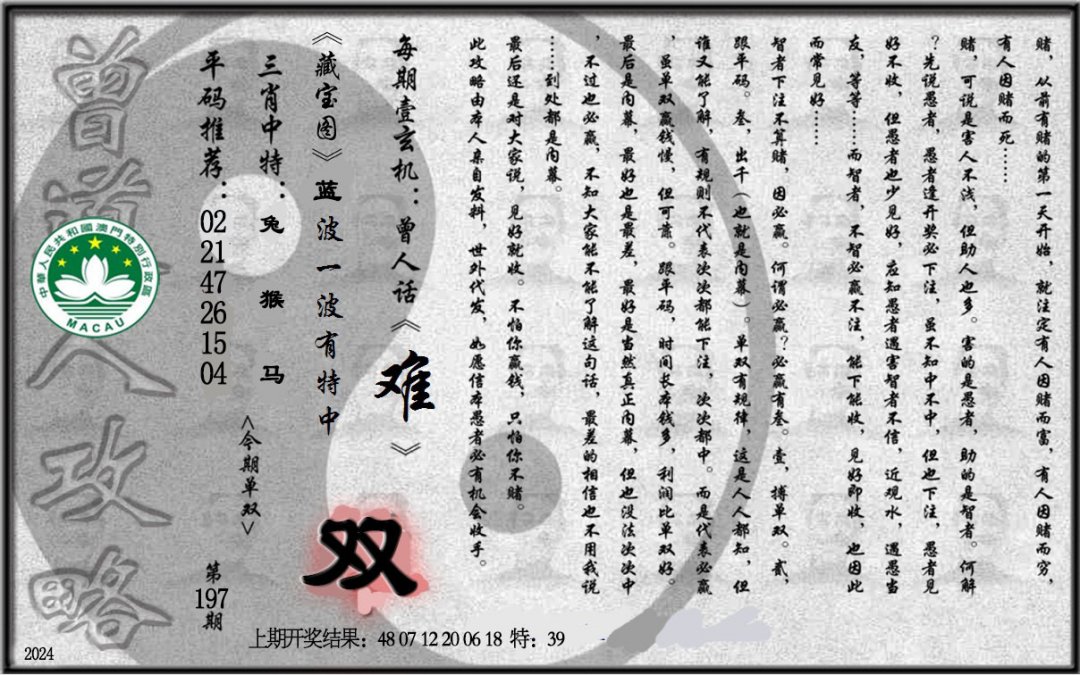 赌，从前有赌的第一天开始，就注定有人因赌而富，有人因赌而穷，
有人因赌而死……
赌，可说是害人不浅，但助人也多。害的是愚者，助的是智者。何解
？先说愚者，愚者逢开奖必下注，虽不知中不中，但也下注，愚者见
好不收，但愚者也少见好，应知愚者遇害智者不信，近观水，遇愚当
友，等等……而智者，不智必赢不注，能下能收，见好即收，也因此
而常见好……
智者下注不算赌，因必赢。何谓必赢？必赢有叁。壹，搏单双。贰，
跟平码。叁，出千（也就是内幕）。单双有规律，这是人人都知，但
谁又能了解，有规则不代表次次都能下注，次次都中。而是代表必赢
，虽单双赢钱慢，但可靠。跟平码，时间长本钱多，利润比单双好。
最后是内幕，最好也是最差，最好是当然真正内幕，但也没法次次中
，不过也必赢，不知大家能不能了解这句话，最差的相信也不用我说
……到处都是内幕。
最后还是对大家说，见好就收。不怕你赢钱，只怕你不赌。
此攻略由本人亲自发料，世外代发，如愿信本愚者必有机会收手。
每期壹玄机：曾人话《难》
《藏宝图》蓝波一波有特中
双
三肖中特：兔 猴 马
<今期单双>
平码推荐：02 21 47 26 15 04
第197期
曾道人攻略
中華人民共和國澳門特別行政區
MACAU
上期开奖结果：48 07 12 20 06 18 特：39
2024